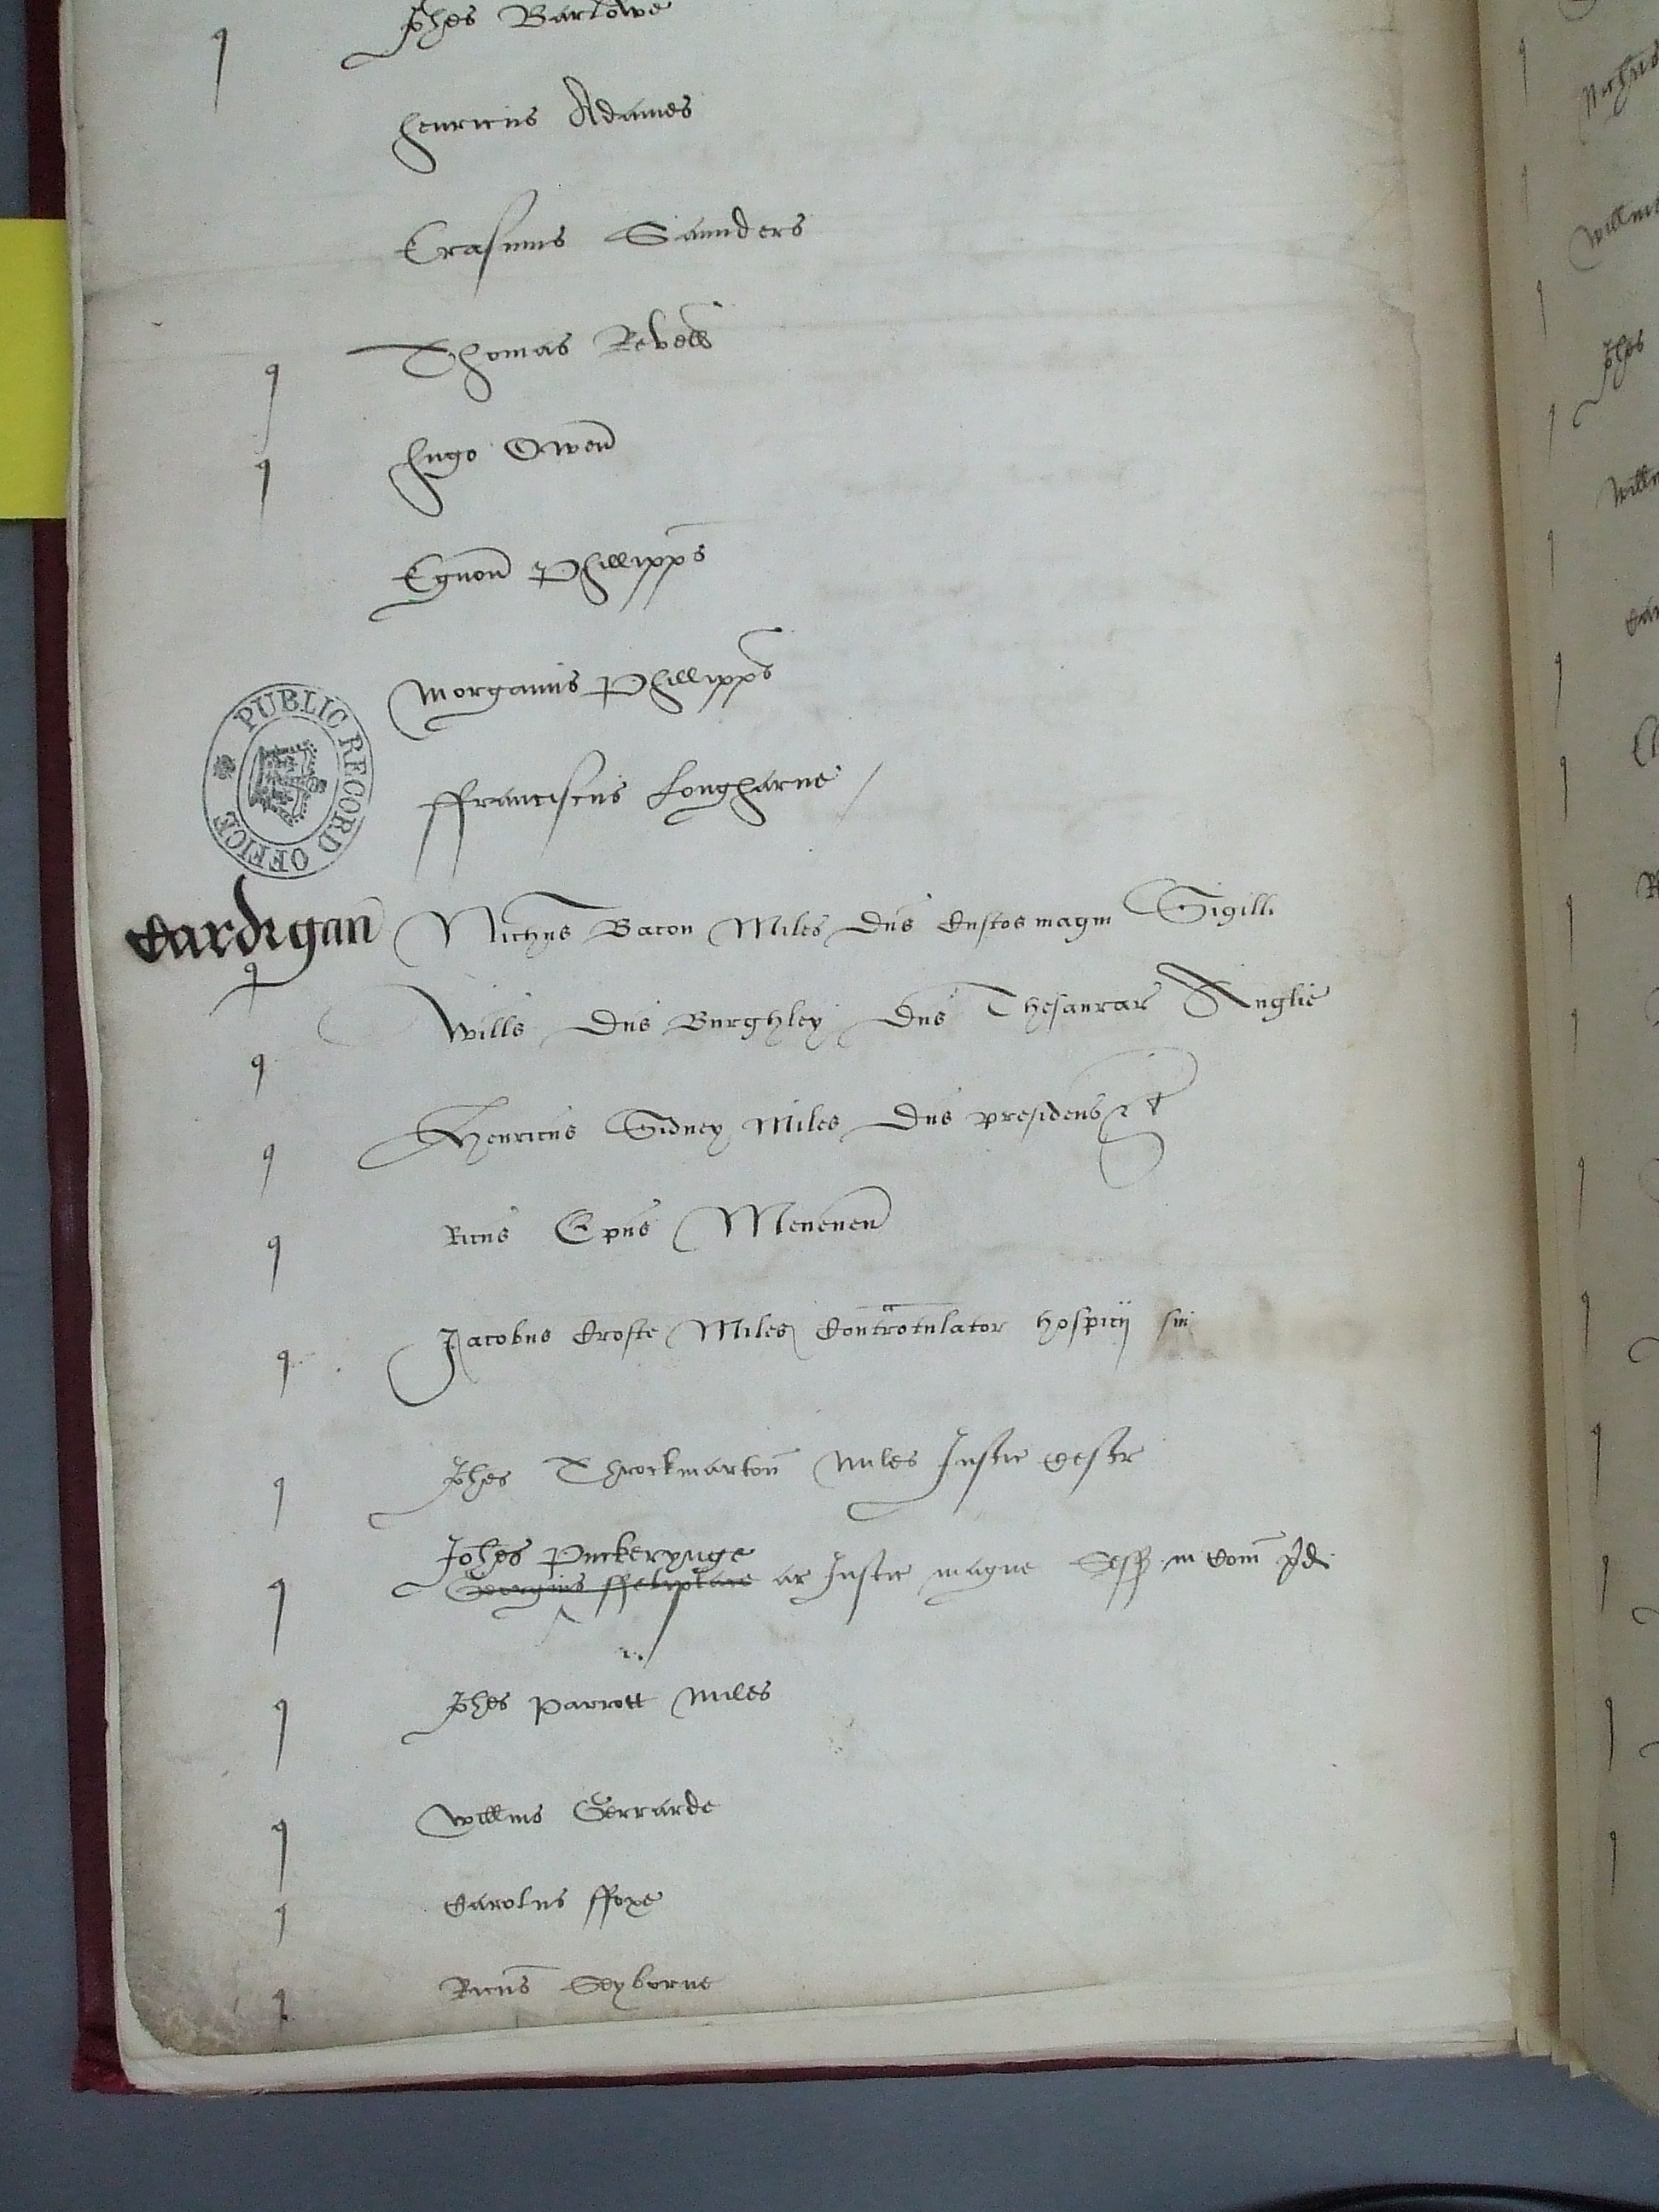 Johes Barlowe
Henricus Adames
Erasmus Saunders
Thomas Revell
Hugo Owen
Egnon Phillipps
Morganus Phillipps
ffranciscus Longharne
PUBLIC RECORD OFFICE
Cardigan Nichus Bacon Miles Dns Custos magni Sigill
Wills Dns Burghley Dns Thesaurar Anglie
Henricus Sidney Miles Dns presidens
Ricus Epus Meneven
Jacobus Crofte Miles Contrarotulator hospicij sui
Johes Throckmarton Miles Justic Cestr
Johes Puckerynge
Georgius ar Justic magne Sess in Com pd
Johes Parrott Miles
Willmus Gerrarde
Carolus ffoxe
Ricus Seyborne